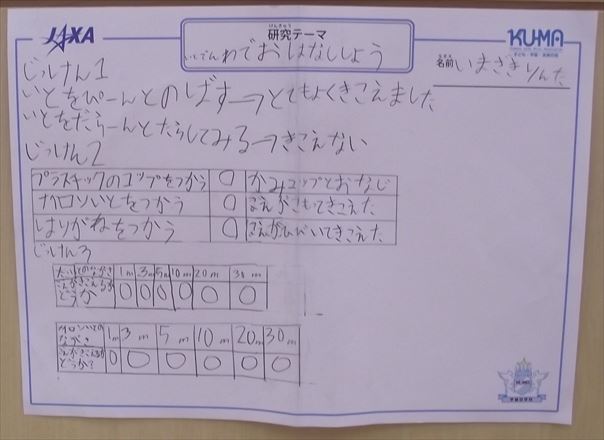 JAXA
けんきゅう
研究テーマ
いとでんわでおはなししよう
KUMA
名前 いまさきりんた
じっけん1
いとをぴーんとのばす→とてもよくきこえました
いとをだらーんとたらしてみる→きこえない
じっけん2
プラスチックのコップをつかう ○ かみコップとおなじ
ナイロンいとをつかう ○ こえがこもてきこえた
はりがねをつかう ○ こえがひびいてきこえた
じっけん3
いとのながさ 1m 3m 5m 10m 20m 30m
こえがきこえるか
どうか ○ ○ ○ ○ ○ ○
ナイロンいとの
ながさ 1m 3m 5m 10m 20m 30m
こえがきこえるか
どうか? ○ ○ ○ ○ ○ ○
KUMA